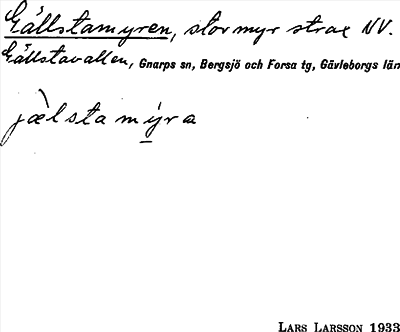 Gällstamyren, stor myr strax NV.
Gällstavallen, Gnarps sn, Bergsjö och Forsa tg, Gävleborgs län
jælstamyra
LARS LARSSON 1933